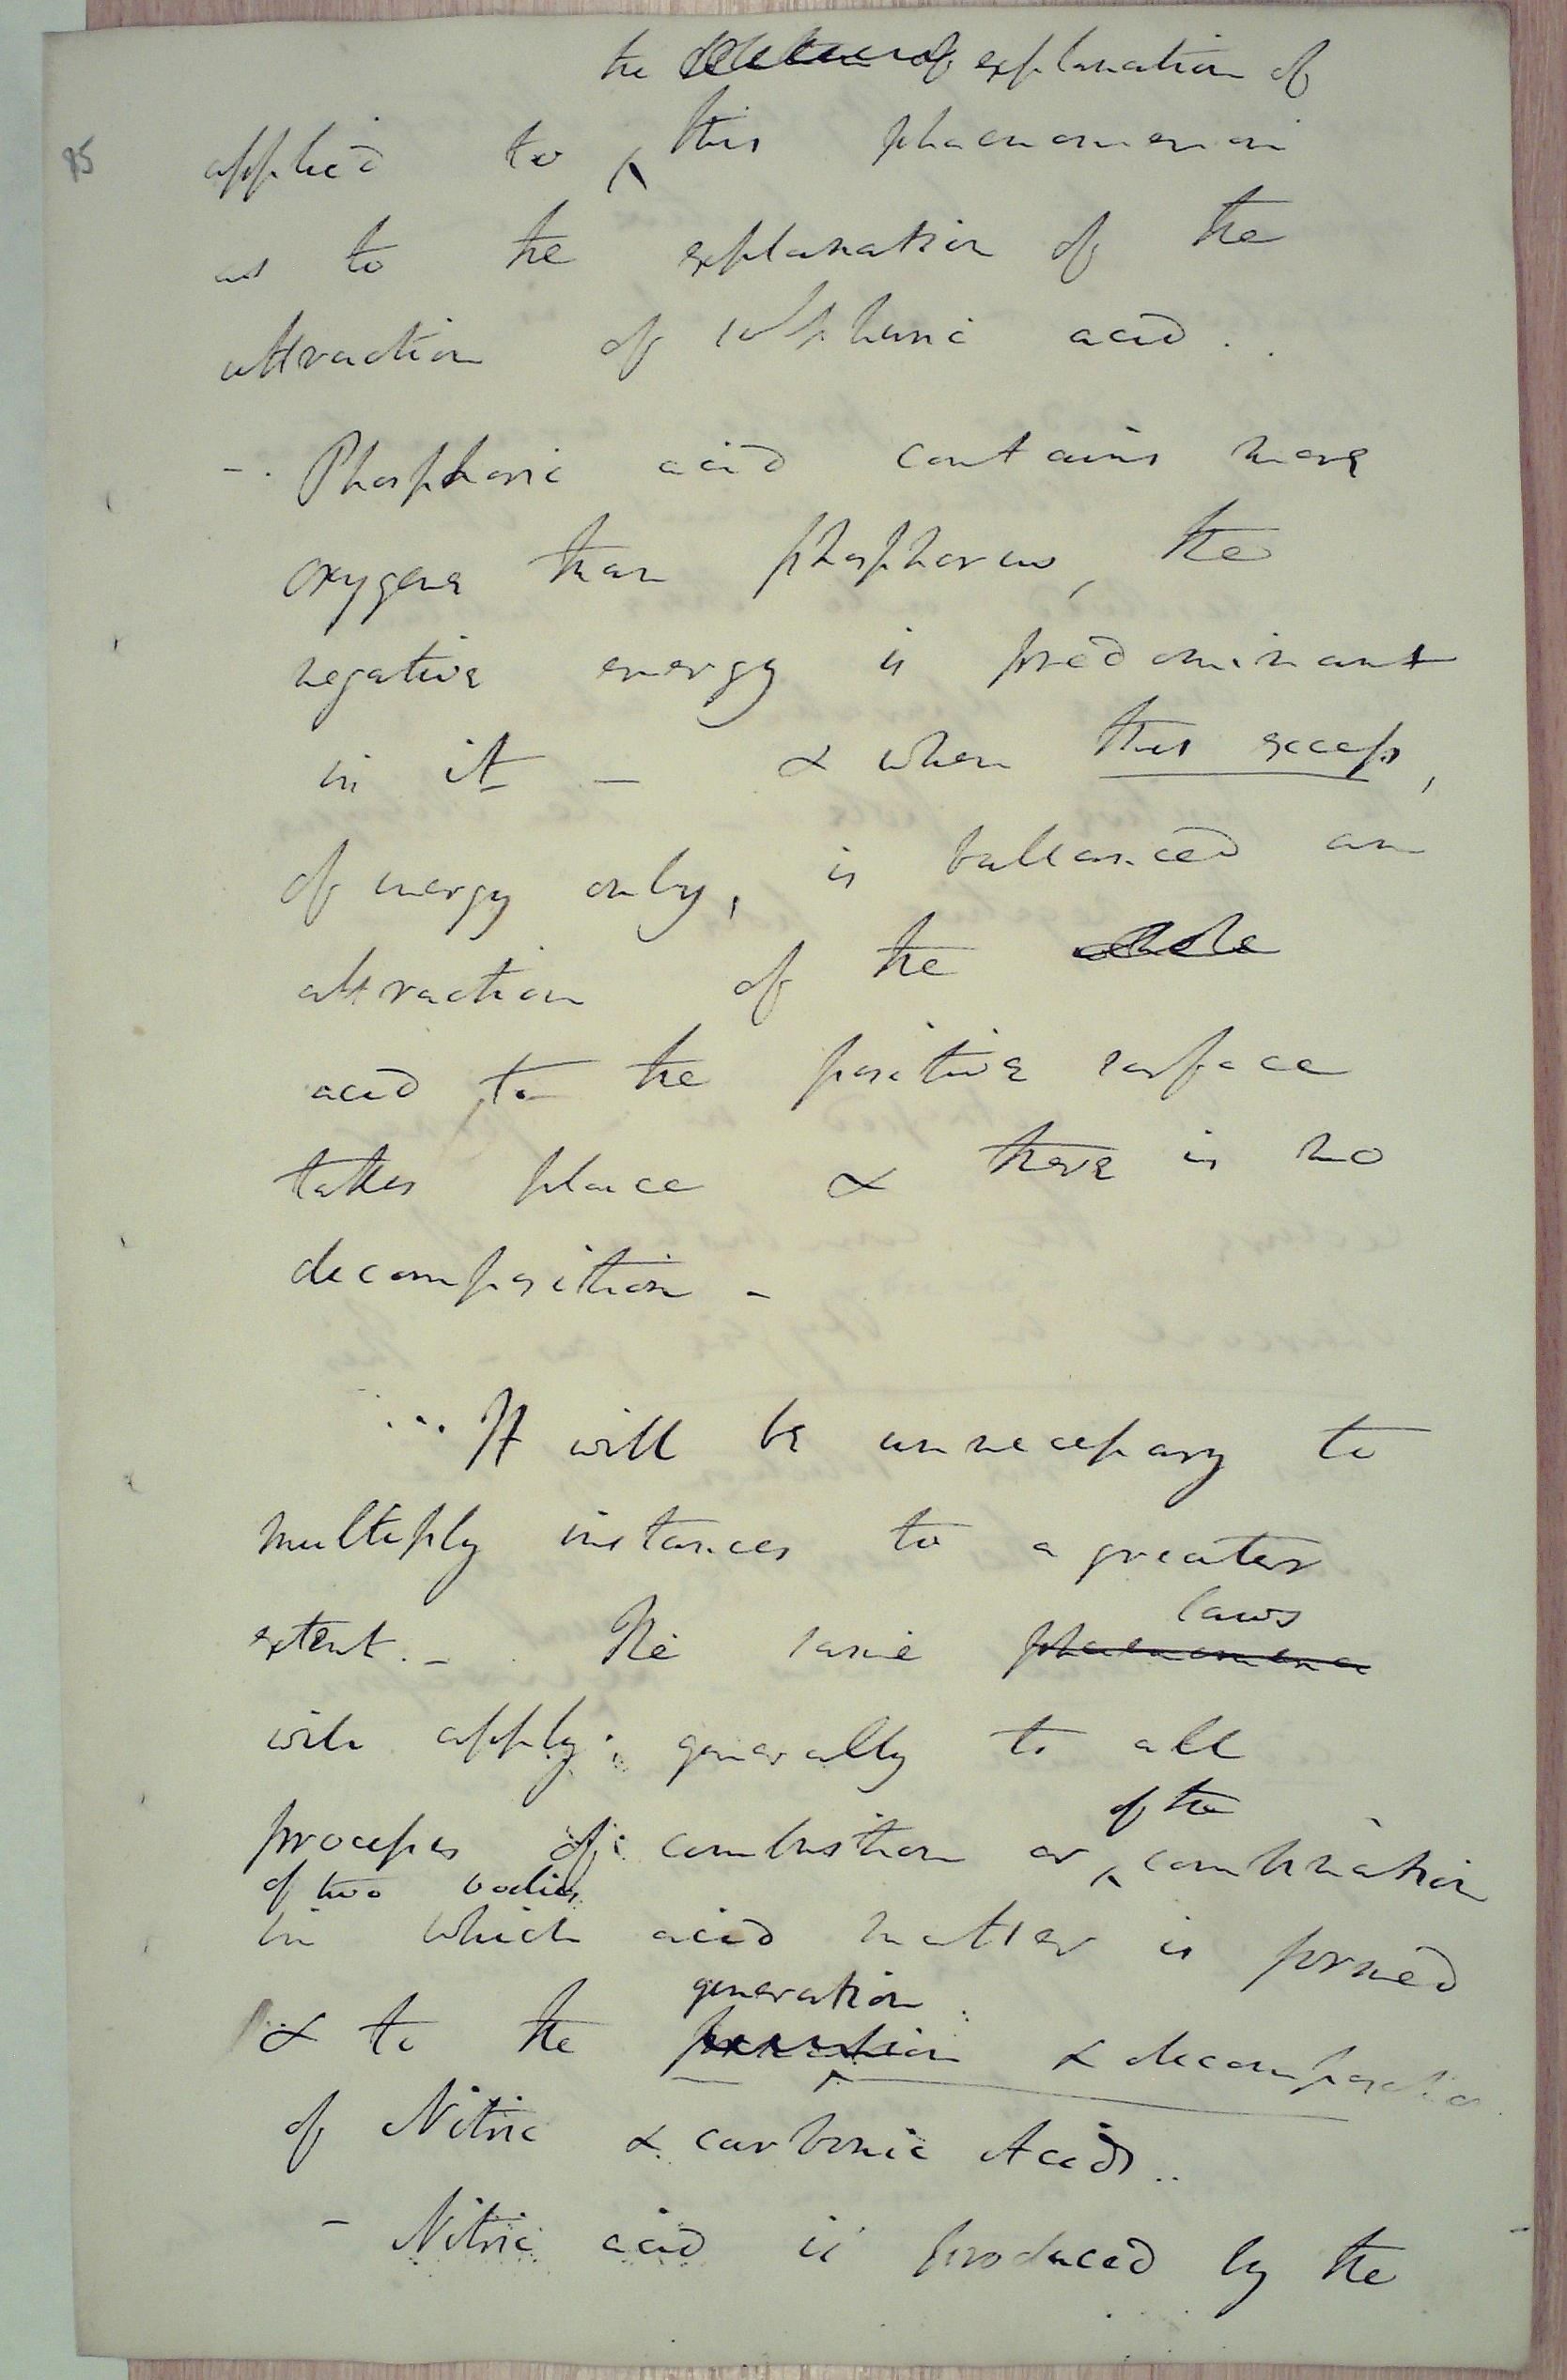 the explanation of
95
applied to ^ this phaenomenon
as to the explanation of the
attraction of sulphuric acid.
-. Phosphoric acid contains more
oxygene than phosphorus, the
negative energy is predominant
in it — & when this excess,
of energy only, is ballanced an
attraction of the whole
acid to the positive surface
takes place & there is no
decomposition -
... It will be unnecessary to
multiply instances to a greater
extent. - The same phaenomena
laws
will apply generally to all
of the
processes of combustion or ^ combination
of two bodies
in which acid matter is formed
generation
& to the formation & decomposition
of Nitric & carbonic Acids..
- Nitric acid is produced by the